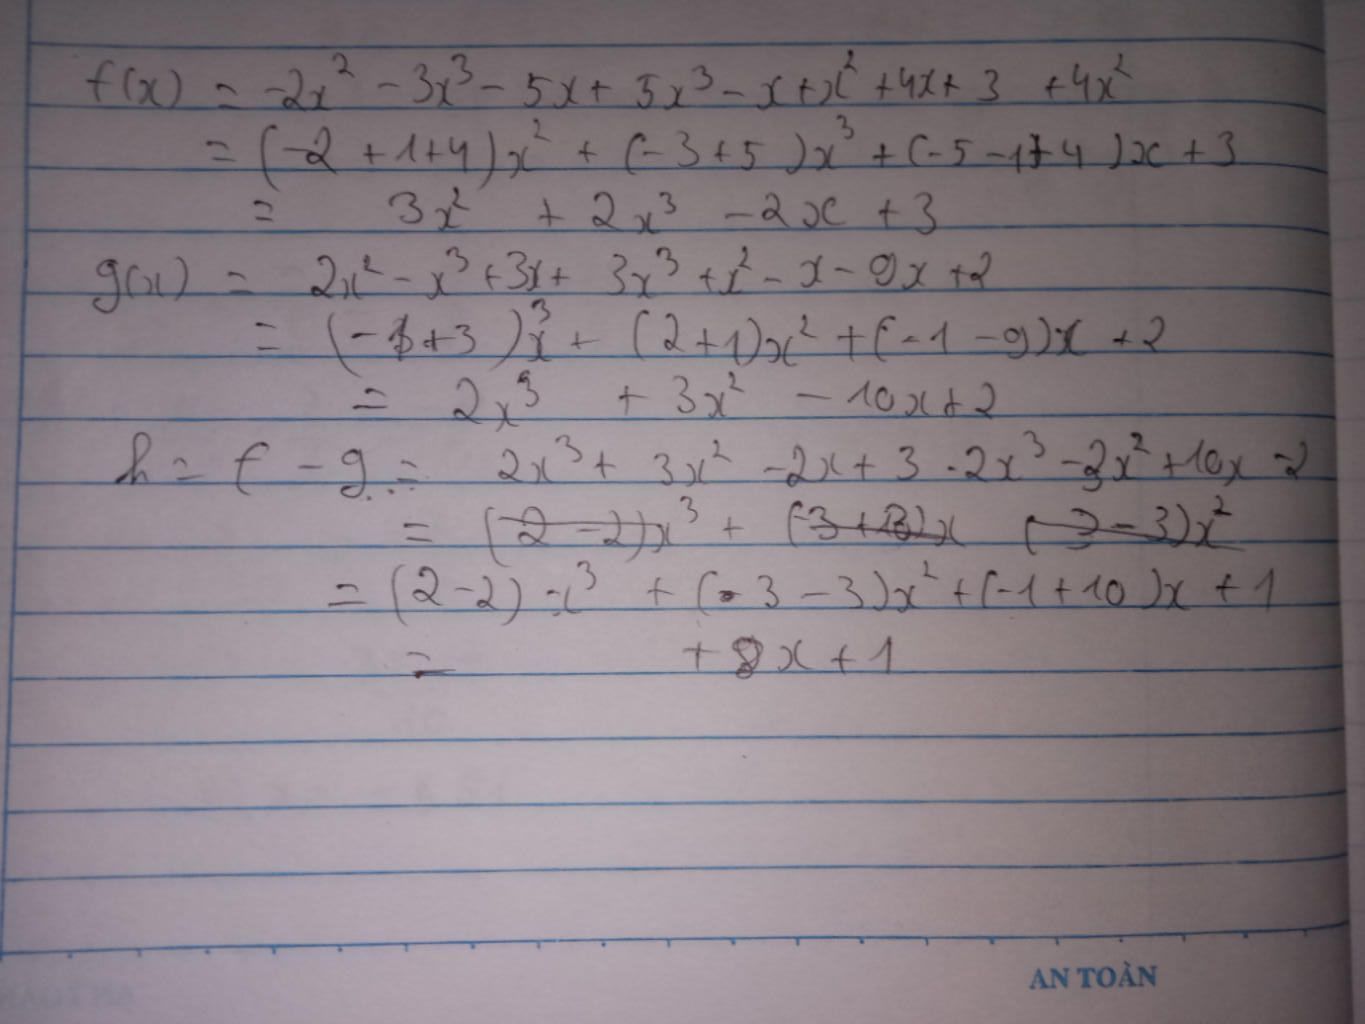 f(x) = -2x² - 3x³ - 5x + 5x³ - x + x² + 4x + 3 + 4x²
= (-2 + 1 + 4)x² + (-3 + 5)x³ + (-5 - 1 + 4)x + 3
= 3x² + 2x³ - 2x + 3
g(x) = 2x² - x³ + 3x + 3x³ + x² - x - 9x + 2
= (-1 + 3)x³ + (2 + 1)x² + (-1 - 9)x + 2
= 2x³ + 3x² - 10x + 2
h = f - g = 2x³ + 3x² - 2x + 3 - 2x³ - 3x² + 10x - 2
= (2 - 2)x³ + (3 - 3)x²
= (2 - 2)x³ + (3 - 3)x² + (-1 + 10)x + 1
= + 8x + 1
AN TOÀN